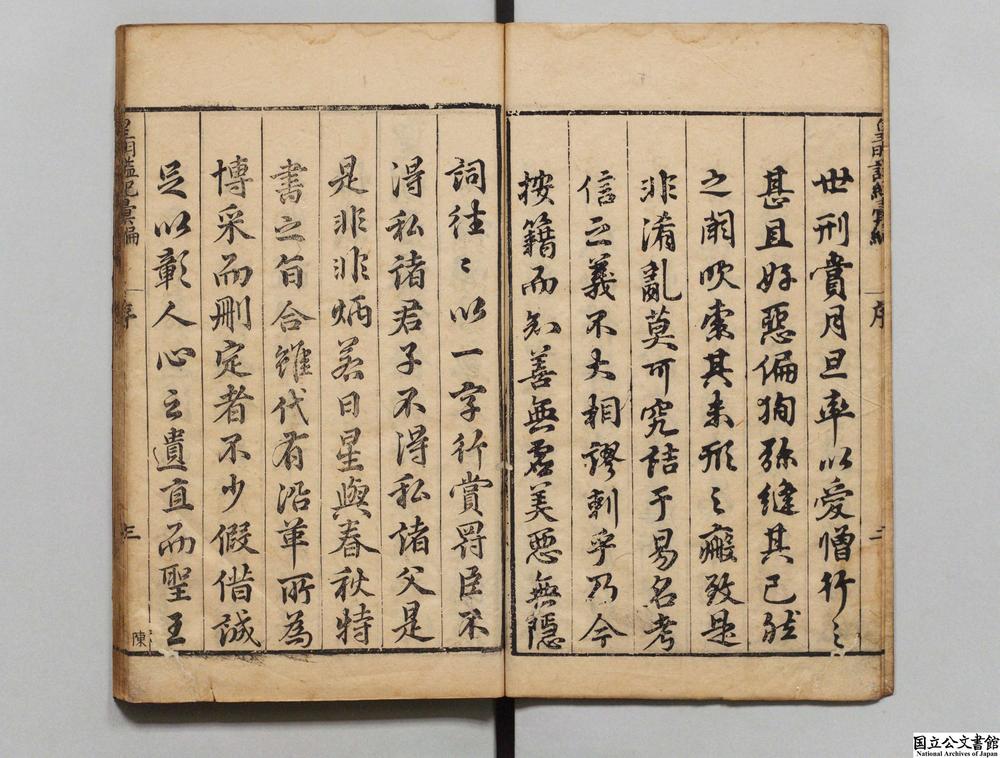 世刑賞月旦率以愛憎行之
甚且好惡偏狥弥縫其已然
之閑吹索其未形之瘢致是
非淆亂莫可究詰于易名考
信之義不大相謬剌乎乃今
按籍而知善無虛美惡無隱
詞往〻以一字行賞罰臣不
得私諸君子不得私諸父是
是非非炳若日星與春秋特
書之旨合雖代有沿革所為
博采而刪定者不少假借誠
足以彰人心之遺直而聖王
皇明鑑紀彙編
序
二
皇明鑑紀彙編
序
三
陳
国立公文書館
National Archives of Japan